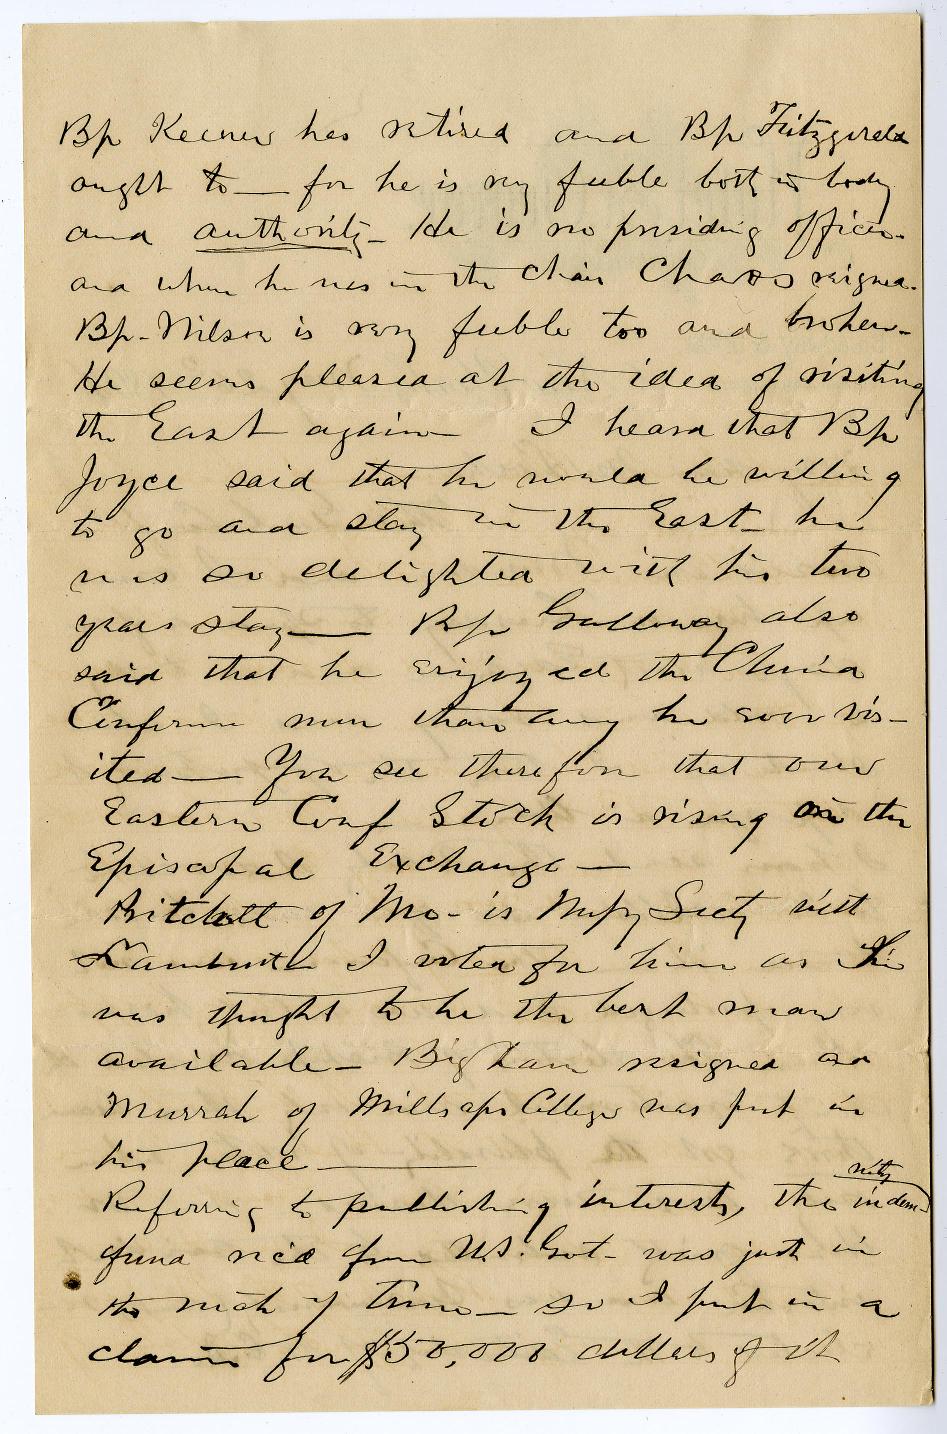 Bp Keener has retired and Bp Fitzgerald
ought to — for he is very feeble both in body
and authority – He is no presiding officer –
and when he was in the Chair Chaos reigned.
Bp – Wilson is very feeble too and broken –
He seems pleased at the idea of visiting
the East again — I heard that Bp
Joyce said that he would be willing
to go and stay in the East – he
was so delighted with his two
years stay — Bp Galloway also
said that he enjoyed the China
Conference more than any he ever vis-
ited — You see therefore that our
Eastern Conf Stock is rising on the
Episcopal Exchange —
Pritchett of Mo – is Secty vist
Lambuth I voted for him as he
was thought to be the best man
available – Bigham resigned and
Murrah of Millsaps College was put in
his place —
Referring to publishing interests, the indem-
nity
fund rec'd from U.S. Govt – was just in
the nick of time — so I put in a
claim for $50,000 dollars of it